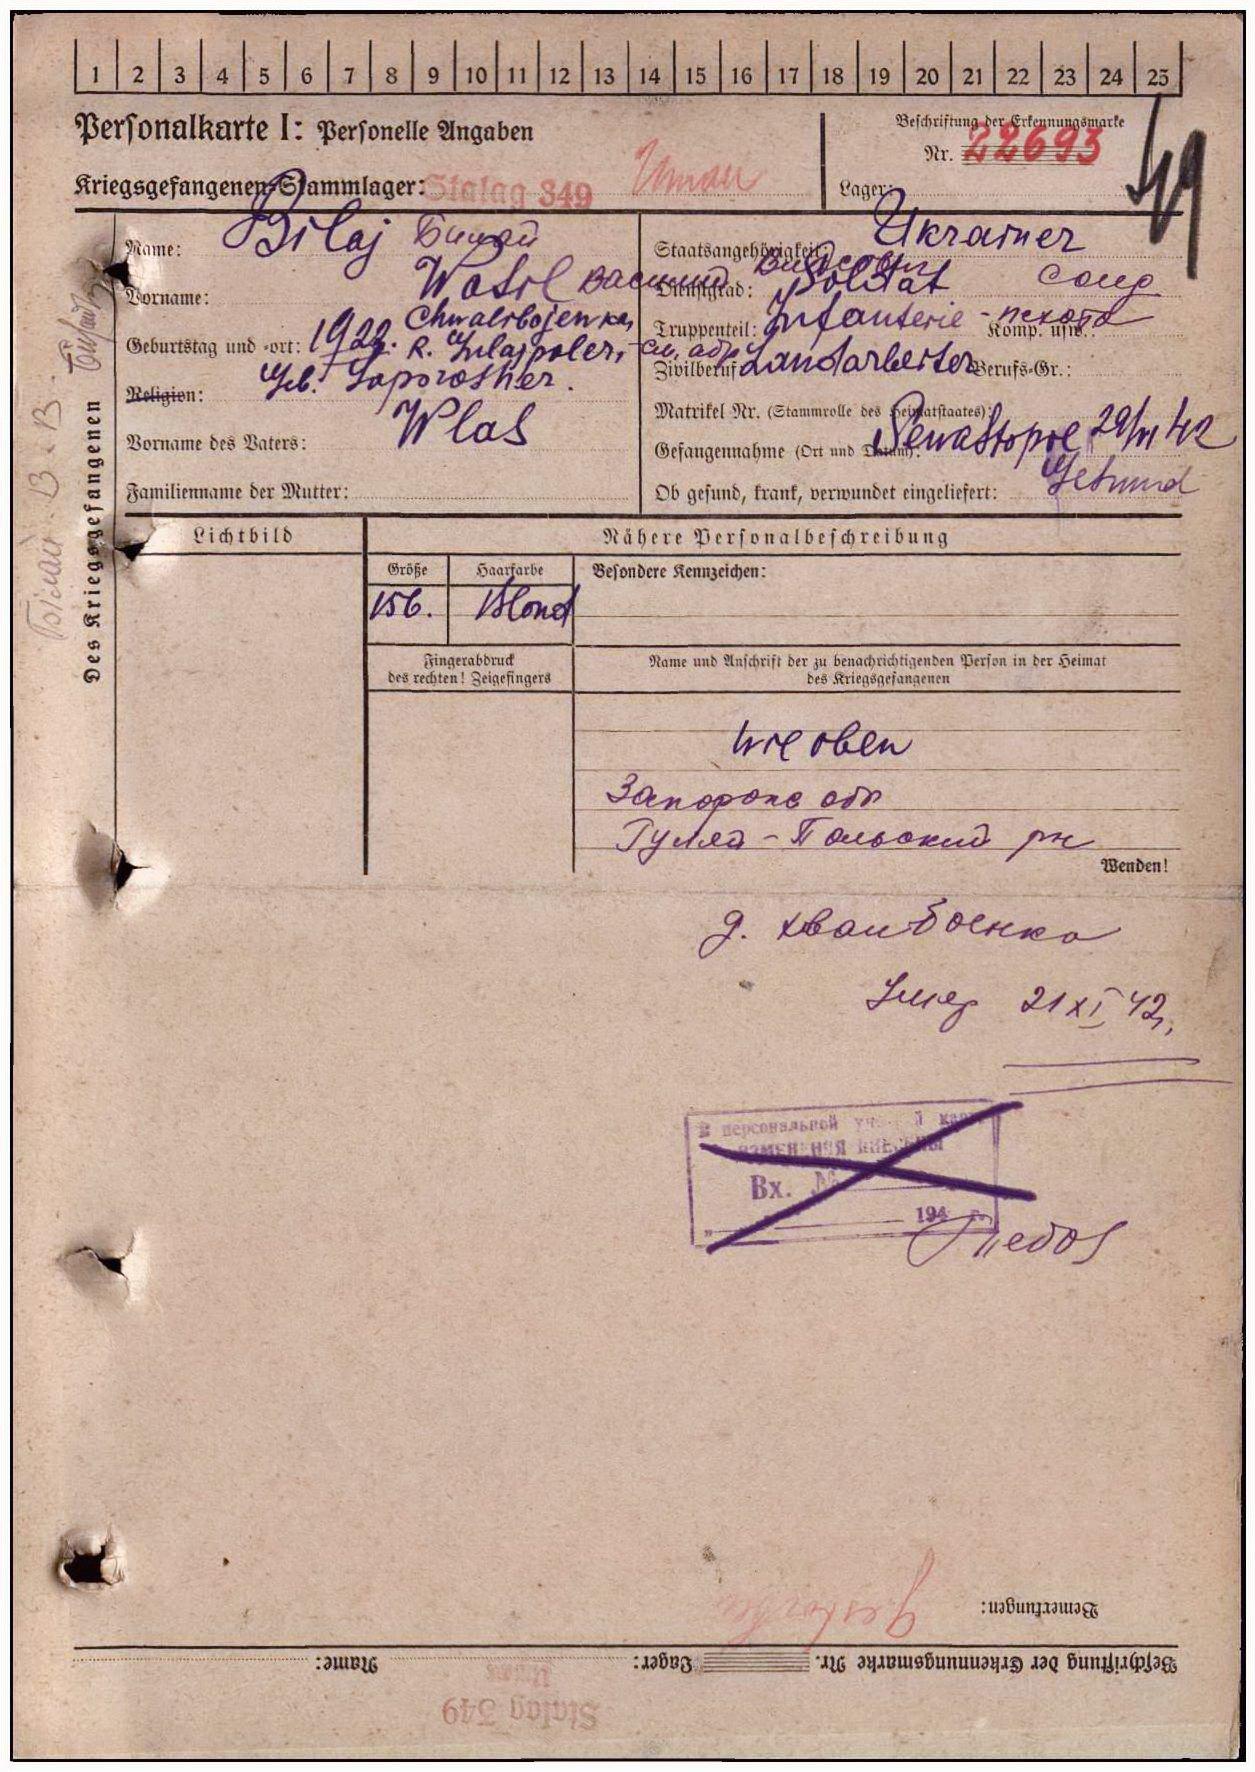 1 2 3 4 5 6 7 8 9 10 11 12 13 14 15 16 17 18 19 20 21 22 23 24 25
Personalkarte I: Personelle Angaben
Beschriftung der Erkennungsmarke
Nr. 22693
49
Kriegsgefangenen-Stammlager: Stalag 349 Uman
Lager:
Des Kriegsgefangenen
Білай В. В.
Name: Bilaj Билай
Vorname: Wasil Василий Власович
Geburtstag und -ort: 1922. Chwalibojenka,
R. Gulajpoler,
Religion: Geb. Saporosher.
Vorname des Vaters: Wlas
Familienname der Mutter:
Staatsangehörigkeit: Ukrainer
Dienstgrad: Soldat солд
Truppenteil: Infanterie - пехота Komp. usw.:
Zivilberuf: Landarbeiter Berufs-Gr.:
Matrikel Nr. (Stammrolle des Heimatstaates):
Gefangennahme (Ort und Datum): Sewastopol 29/VI 42
Ob gesund, krank, verwundet eingeliefert: Gesund
Lichtbild
Nähere Personalbeschreibung
Größe Haarfarbe Besondere Kennzeichen:
156. Blond
Fingerabdruck
des rechten! Zeigefingers
Name und Anschrift der zu benachrichtigenden Person in der Heimat
des Kriegsgefangenen
wie oben
Запорожс обл
Гуляй-Польский рн
Wenden!
д. Хвалибоенка
Умер 21 XI 42,
В персональной карте
изменения внесены
Вх. №
194 г.
Bemerkungen:
Gestorben
Beschriftung der Erkennungsmarke Nr. Lager: Name:
Stalag 349
Uman